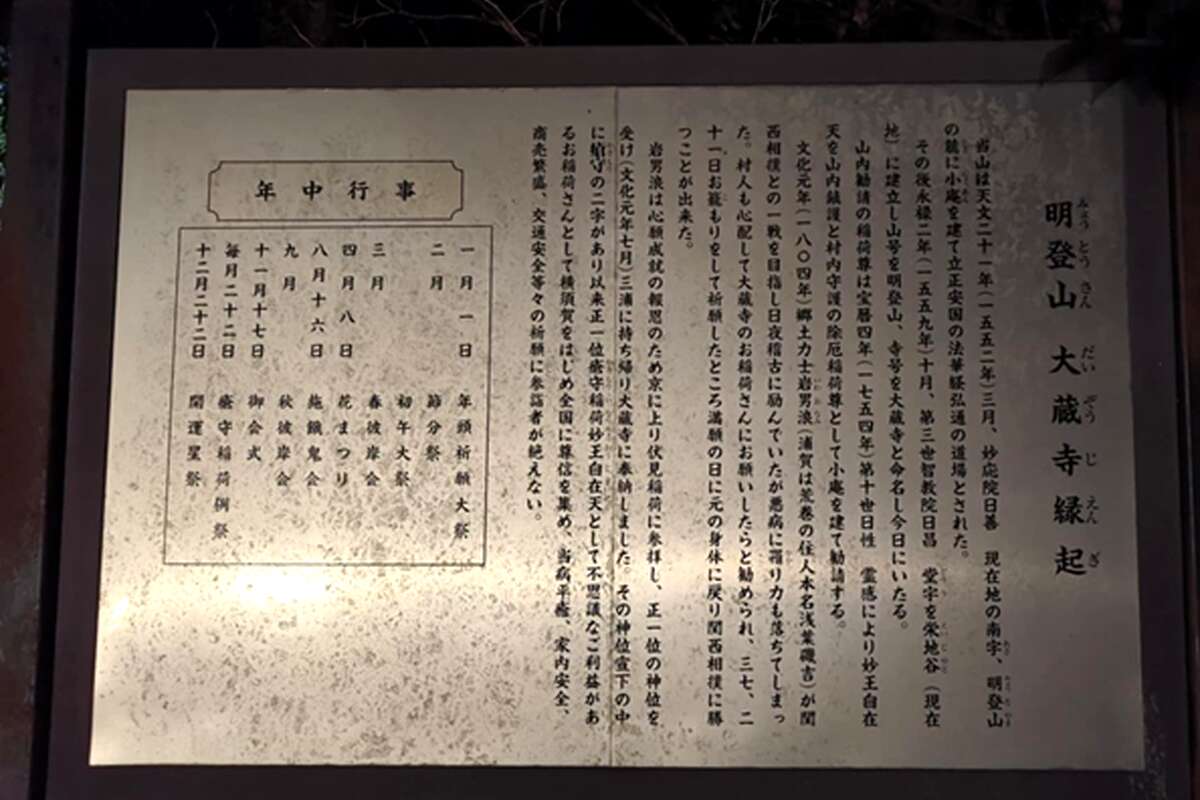 明登山 大蔵寺縁起
みょうとうさん だいぞうじえんぎ
当山は天文二十一年(一五五二年)三月、妙応院日善 現在地の南字、明登山
の麓に小庵を建て立正安国の法華経弘通の道場とされた。
その後永禄二年(一五五九年)十月、第三世智教院日昌 堂宇を栄地谷(現在
地)に建立し山号を明登山、寺号を大蔵寺と命名し今日にいたる。
山内勧請の稲荷尊は宝暦四年(一七五四年)第十世日性 霊感により妙王自在
天を山内鎮護と村内守護の除厄稲荷尊として小庵を建て勧請する。
文化元年(一八〇四年)郷土力士岩男浪(浦賀は荒巻の住人本名浅葉磯吉)が関
西相撲との一戦を目指し日夜稽古に励んでいたが悪病に罹り力も落ちてしまっ
た。村人も心配して大蔵寺のお稲荷さんにお願いしたらと勧められ、三七、二
十一日お籠もりをして祈願したところ満願の日に元の身体に戻り関西相撲に勝
つことが出来た。
岩男浪は心願成就の報恩のため京に上り伏見稲荷に参拝し、正一位の神位を
受け(文化元年七月)三浦に持ち帰り大蔵寺に奉納しました その神位宣下の中
に 守の二字があり以来正一位瘡守稲荷妙王自在天として不思議なご利益があ
るお稲荷さんとして横須賀をはじめ全国に尊信を集め、当病平癒、家内安全、
商売繁盛、交通安全等々の祈願に参詣者が絶えない。
年中行事
一月一日 年頭祈願大祭
二月 節分祭
初午大祭
三月 春彼岸会
四月八日 花まつり
八月十六日 施餓鬼会
九月 秋彼岸会
十一月十七日 御会式
毎月二十二日 瘡守稲荷例祭
十二月二十二日 開運星祭